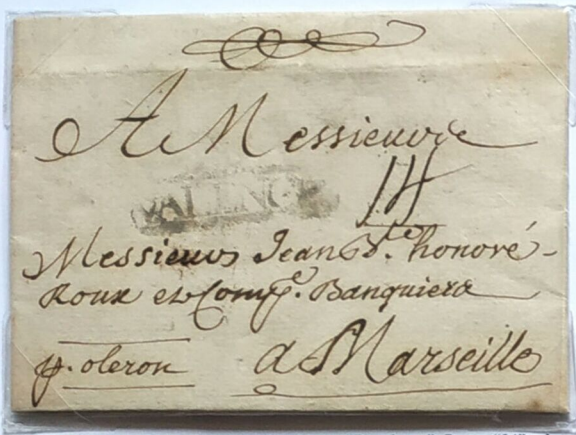 A Messieurs
VALENCE
14
Messieurs Jean Bte. honoré
Roux et Compe. Banquiers
p. oleron a Marseille